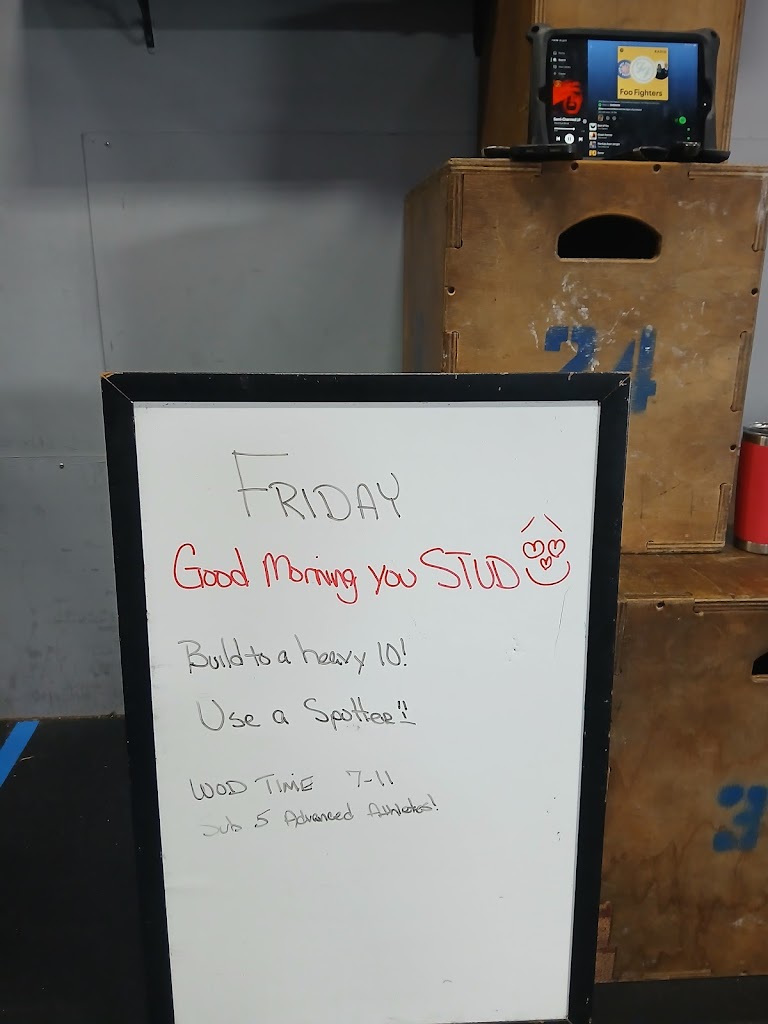 Foo Fighters
24
FRIDAY
Good Morning you STUD
Build to a heavy 10!
Use a Spotter!!
WOD TIME 7-11
Sub 5 Advanced Athletes!
3